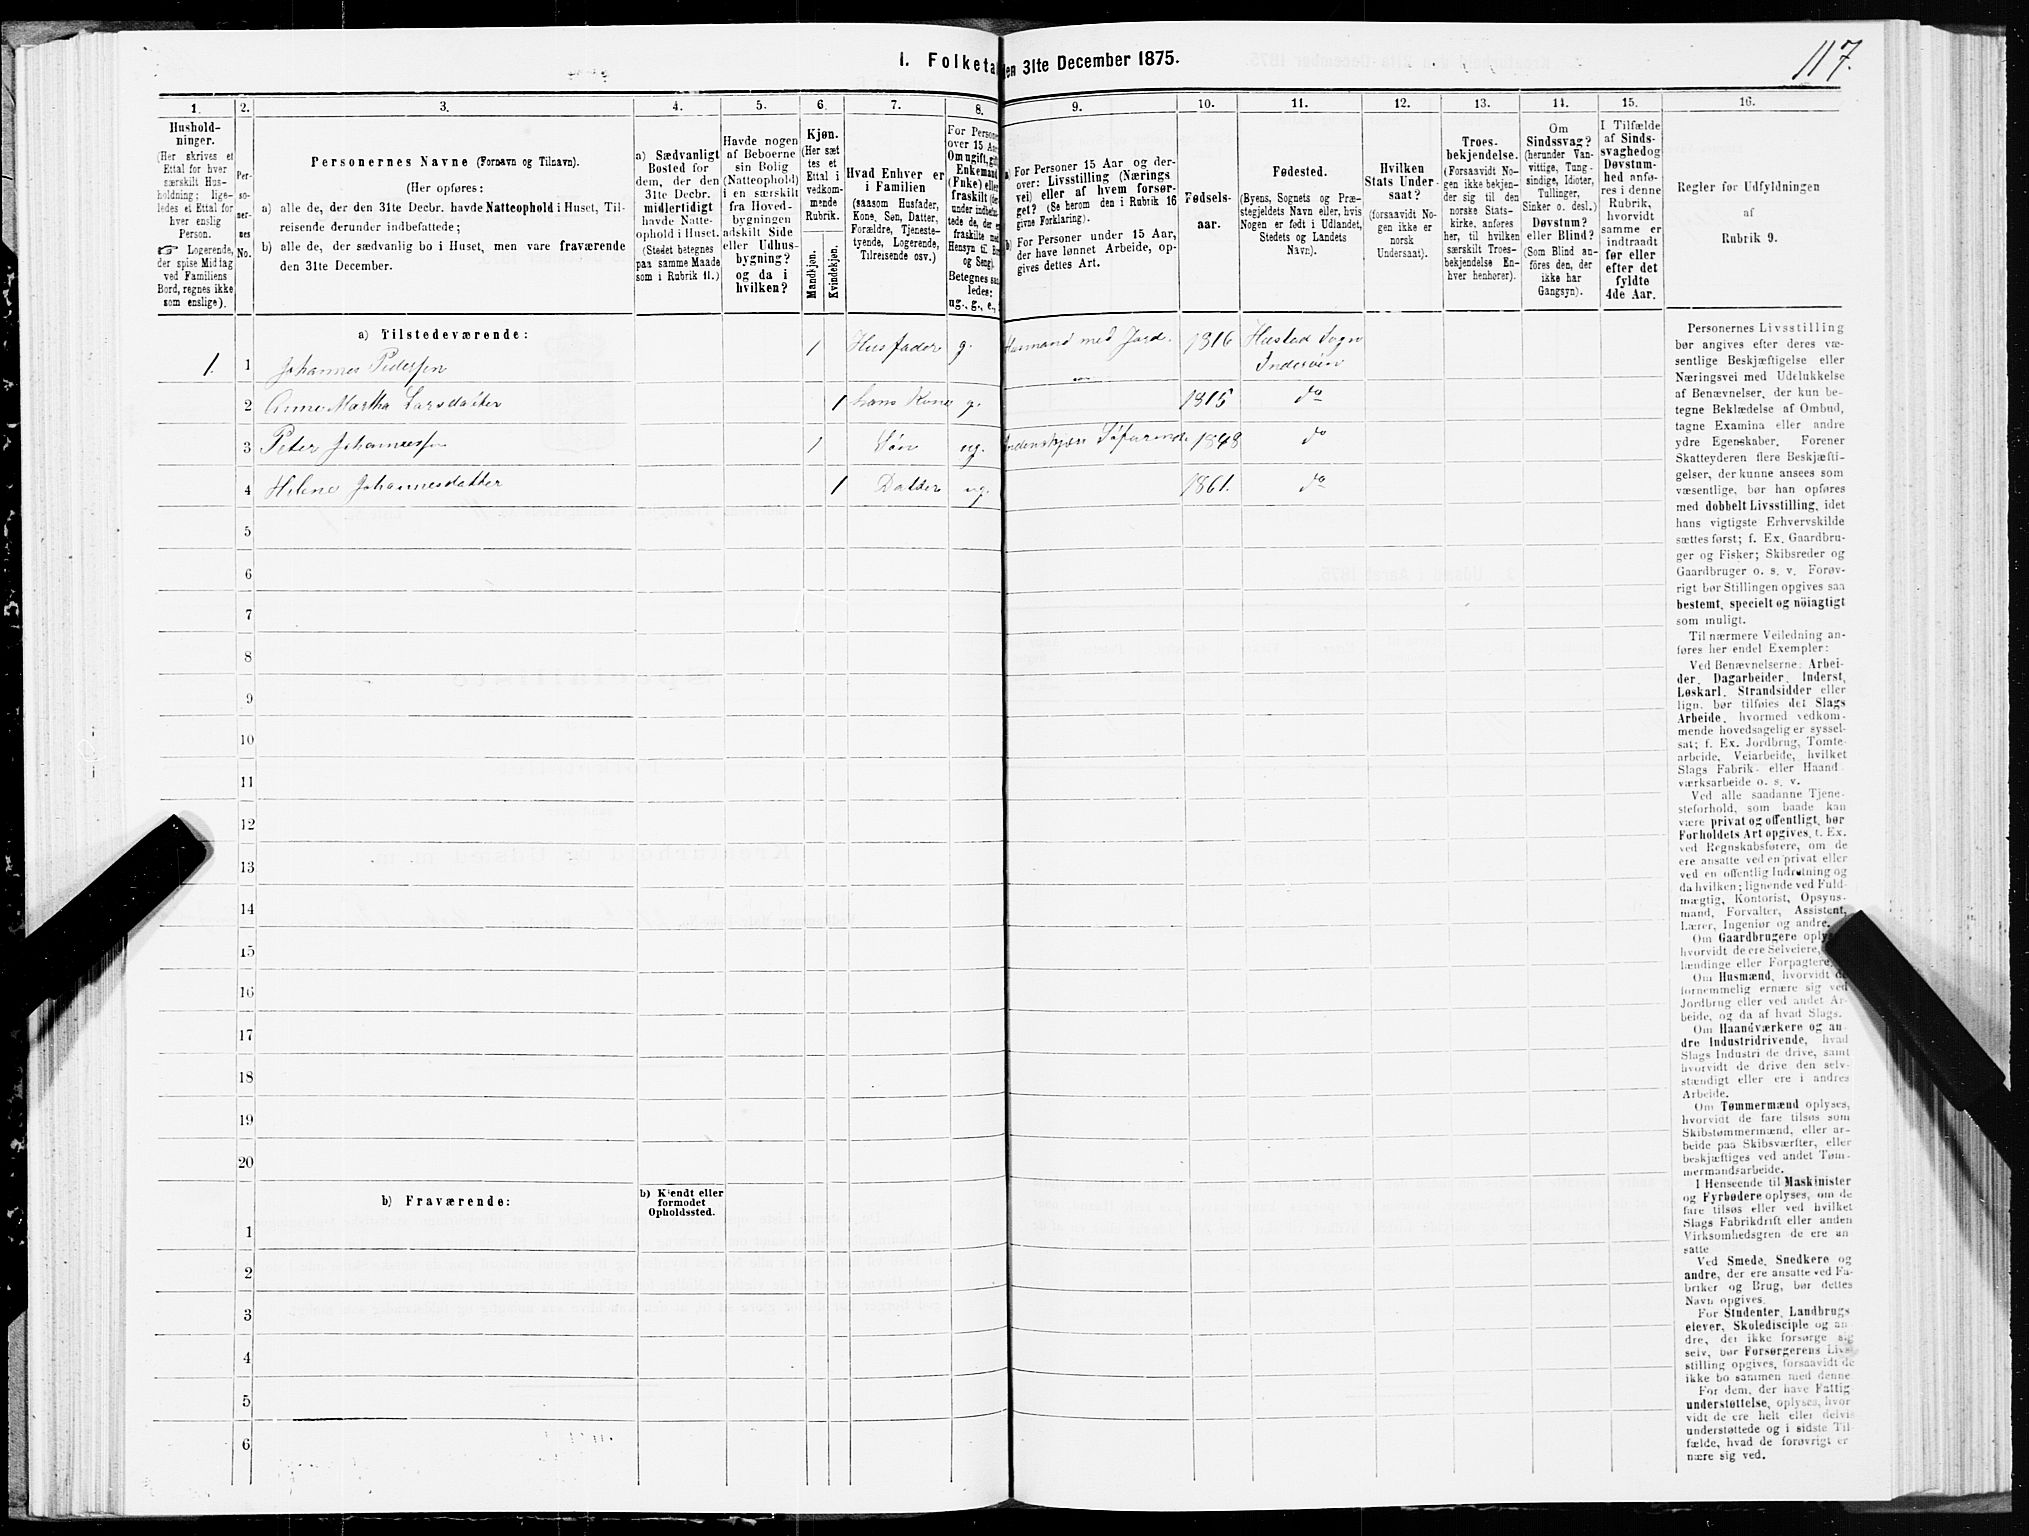 117.
I. Folketa
en 31te December 1875.
1.
2.
3.
4.
5.
6.
7.
8.
9.
10.
11.
12.
13.
14.
15.
16.
Hushold-
ninger.
(Her skrives et
Ettal for hver
særskilt Hus-
holdning; lige-
ledes et Ettal for
hver enslig
Person.
☞ Logerende,
der spise Middag
ved Familiens
Bord, regnes ikke
som enslige).
Per-
so-
ner-
nes
No.
Personernes Navne (Fornavn og Tilnavn).
(Her opføres:
a) alle de, der den 31te Decbr. havde Natteophold i Huset, Til-
reisende derunder indbefattede;
b) alle de, der sædvanlig bo i Huset, men vare fraværende
den 31te December.
a) Sædvanligt
Bosted for
dem, der den
31te Decbr.
midlertidigt
havde Natte-
ophold i Huset.
(Stedet betegnes
paa samme Maade
som i Rubrik 11.)
Havde nogen
af Beboerne
sin Bolig
(Natteophold)
i en særskilt
fra Hoved-
bygningen
adskilt Side
eller Udhus-
bygning?
og da i
hvilken?
Kjøn.
(Her sæt
tes et
Ettal i
vedkom-
mende
Rubrik.
Mandkjøn.
Kvindekjøn.
Hvad Enhver er
i Familien
(saasom Husfader,
Kone, Søn, Datter,
Forældre, Tjeneste-
tyende, Logerende,
Tilreisende osv.)
For Persone
over 15 Aar
Om ugift, gift
Enkemand
(Enke) eller
fraskilt (der
under indbefat
tede de, der er
fraskilte med
Hensyn til Bor
og Seng).
Betegnes saa
ledes:
ug., g., e.,
a) For Personer 15 Aar og der-
over: Livsstilling (Nærings
vei) eller af hvem forsør-
get? (Se herom den i Rubrik 16
givne Forklaring).
b) For Personer under 15 Aar,
der have lønnet Arbeide, op-
gives dettes Art.
Fødsels-
aar.
Fødested.
(Byens, Sognets og Præ-
stegjeldets Navn eller, hvis
Nogen er født i Udlandet,
Stedets og Landets
Navn).
Hvilken
Stats Under-
saat?
(forsaavidt No-
gen ikke er
norsk
Undersaat).
Troes-
bekjendelse.
(Forsaavidt No-
gen ikke bekjen-
der sig til den
norske Stats-
kirke, anføres
her, til hvilken
særskilt Troes-
bekjendelse En-
hver henhører).
Om
Sindssvag?
(herunder Van-
vittige, Tung-
sindige, Idioter,
Tullinger,
Sinker o. desl.)
Døvstum?
eller Blind?
(Som Blind an-
føres den, der
ikke har
Gangsyn).
I Tilfælde
af Sinds-
svaghed og
Døvstum-
hed anfø-
res i denne
Rubrik,
hvorvidt
samme er
indtraadt
før eller
efter det
fyldte
4de Aar.
Regler før Udfyldningen
af
Rubrik 9.
a) Tilstedeværende:
1. 1 Johannes Pedersen 1 Husfader g. Husmand med Jord. 1816 Husted Sogn
2 Anne Martha Larsdatter 1 hans Kone g. 1815 do
3 Peter Johannessen 1 Søn ug. 1848 do
4 Helene Johannesdatter 1 Datter ug. 1861. do
5
6
7
8
9
10
11
12
13
14
15
16
17
18
19
20
b) Fraværende:
b) Kjendt eller
formodet
Opholdssted.
1
2
3
4
5
6
Personernes Livsstilling
bør angives efter deres væ-
sentlige Beskjæftigelse eller
Næringsvei med Udelukkelse
af Benævnelser, der kun be-
tegne Beklædelse af Ombud,
tagne Examina eller andre
ydre Egenskaber. Forener
Skatteyderen flere Beskjæfti-
gelser, der kunne ansees som
væsentlige, bør han opføres
med dobbelt Livsstilling, idet
hans vigtigste Erhvervskilde
sættes først; f. Ex. Gaardbru-
ger og Fisker; Skibsreder og
Gaardbruger o. s. v. Forøv-
rigt bør Stillingen opgives saa
bestemt, specielt og nöiagtigt
som muligt.
Til nærmere Veiledning an-
føres her endel Exempler:
Ved Benævnelserne: Arbei-
der, Dagarbeider, Inderst,
Løskarl, Strandsidder eller
lign. bør tilføies det Slags
Arbeide, hvormed vedkom-
mende hovedsagelig er syssel-
sat; f. Ex. Jordbrug, Tomte-
arbeide, Veiarbeide, hvilket
Slags Fabrik- eller Haand-
værksarbeide o. s. v.
Ved alle saadanne Tjene-
steforhold, som baade kan
være privat og offentligt, bør
Forholdets Art opgives, t. Ex.
ved Regnskabsførere, om de
ere ansatte ved en privat eller
ved en offentlig Indretning og
da hvilken; lignende ved Fuld-
mægtig, Kontorist, Opsyns-
mand, Forvalter, Assistent,
Lærer, Ingeniør og andre.
Om Gaardbrugere oplys
hvorvidt de ere Selveiere,
lændinge eller Forpagtere,
Om Husmænd, hvorvidt de
fornemmelig ernære sig ved
Jordbrug eller ved andet Ar-
beide, og da af hvad Slags.
Om Haandværkere og an
dre Industridrivende, hvad
Slags Industri de drive, samt
hvorvidt de drive den selv-
stændigt eller ere i andres
Arbeide.
Om Tømmermænd oplyses,
hvorvidt de fare tilsøs som
Skibstømmermænd, eller ar-
beide paa Skibsværfter, eller
beskjæftiges ved andet Tøm-
mermandsarbeide.
I Henseende til Maskinister
og Fyrbødere oplyses, om de
fare tilsøs eller ved hvilket
Slags Fabrikdrift eller anden
Virksomhedsgren de ere an
satte
Ved Smede, Snedkere og
andre, der ere ansatte ved Fa-
briker og Brug, bør dettes
Navn opgives.
For Studenter, Landbrugs
elever, Skoledisciple og an-
dre, der ikke forsørge sig
selv, bør Forsørgerens Livs
stilling opgives, forsaavidt de
ikke bo sammen med denne
For dem, der have Fattig
understøttelse, oplyses, hvor
vidt de ere helt eller delvis
understøttede og i sidste Til-
fælde, hvad de forøvrigt er
nære sig ved.